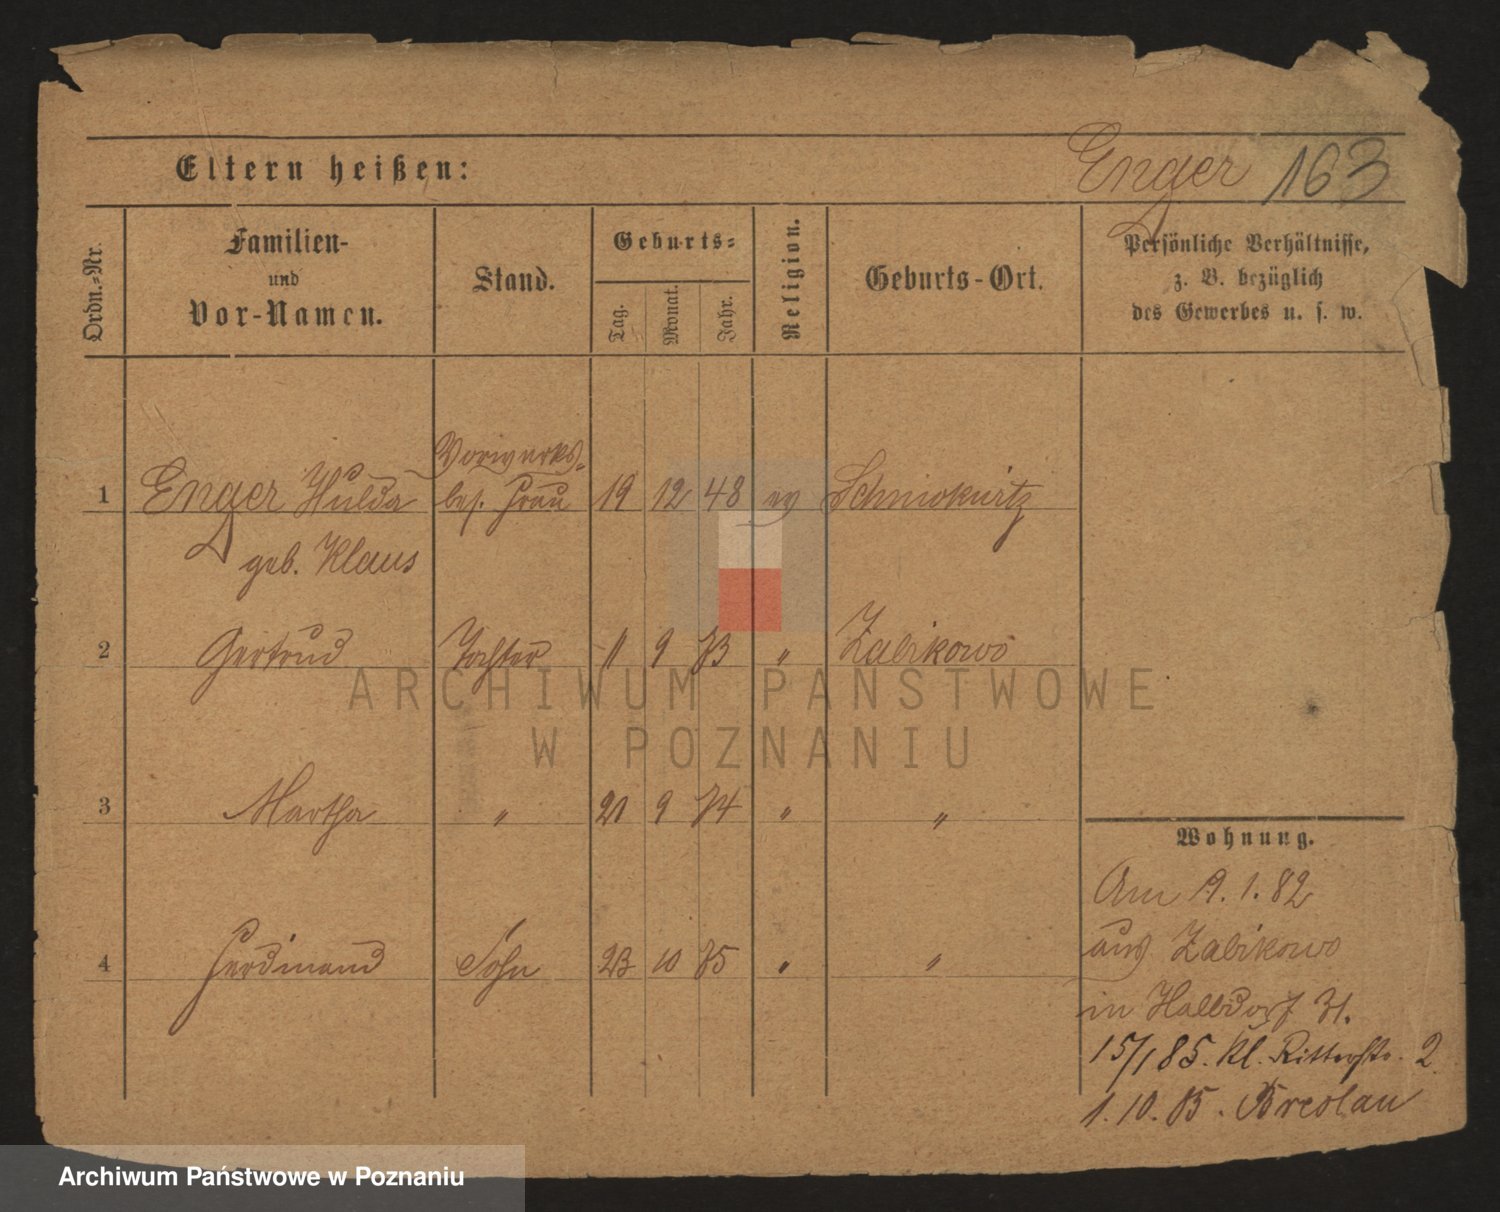 Eltern heißen:
Enger 163
Ordn.-Nr.
Familien-
und
Vor-Namen.
Stand.
Geburts-
Tag.
Monat.
Jahr.
Religion.
Geburts-Ort.
Persönliche Verhältnisse,
z. B. bezüglich
des Gewerbes u. s. w.
Vorwerks-
1 Enger Hulda bes. Frau 19 12 48 ev Schmokwitz
geb. Klaus
2 Gertrud Tochter 11 9 73 " Zabikowo
ARCHIWUM PAŃSTWOWE
W POZNANIU
3 Martha " 21 9 74 " "
4 Ferdinand Sohn 23 10 75 " "
Wohnung.
Am 19. 1. 82
aus Zabikowo
in Halbdorf 31.
15/1 85. Kl. Ritterstr. 2
1. 10. 85. Breslau
Archiwum Państwowe w Poznaniu